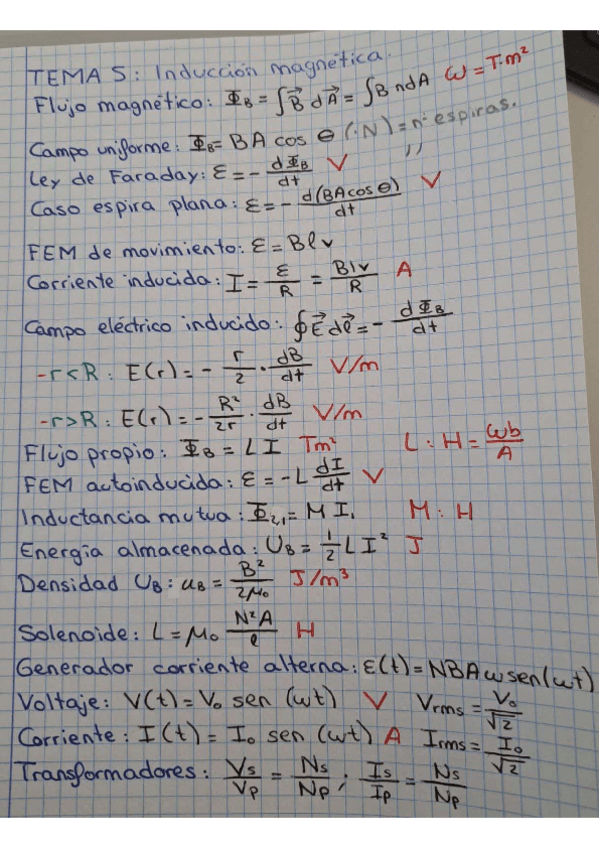 TEMA 5: Inducción magnética.
Flujo magnético: Φ_B = ∫B⃗ dA⃗ = ∫B n dA ω = T·m²
Campo uniforme: Φ_B = BA cos θ (·N) = nº espiras.
Ley de Faraday: ε = - dΦ_B/dt V ,,
Caso espira plana: ε = - d(BA cos θ)/dt V
FEM de movimiento: ε = Blv
Corriente inducida: I = ε/R = Blv/R A
Campo eléctrico inducido: ∮E⃗ dℓ⃗ = - dΦ_B/dt
-r<R: E(r) = - r/2 · dB/dt V/m
-r>R: E(r) = - R²/2r · dB/dt V/m
Flujo propio: Φ_B = LI Tm² L: H = ωb/A
FEM autoinducida: ε = -L dI/dt V
Inductancia mutua: Φ₂,₁ = MI₁ M: H
Energía almacenada: U_B = 1/2 LI² J
Densidad U_B: u_B = B²/2μ₀ J/m³
Solenoide: L = μ₀ N²A/ℓ H
Generador corriente alterna: ε(t) = NBAω sen(ωt)
Voltaje: V(t) = V₀ sen (ωt) V Vrms = V₀/√2
Corriente: I(t) = I₀ sen (ωt) A Irms = I₀/√2
Transformadores: Vs/Vp = Ns/Np ; Is/Ip = Ns/Np